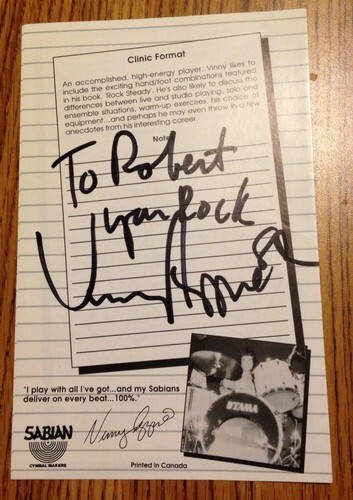 Clinic Format
An accomplished, high-energy player, Vinny likes to
include the exciting hand/foot combinations featured
in his book, 'Rock Steady'. He's also likely to discuss the
differences between live and studio playing, solo and
ensemble situations, warm-up exercises, his choice of
equipment...and perhaps he may even throw in a few
anecdotes from his interesting career.
Note
To Robert
Rock
Vinny Appice
"I play with all I've got...and my Sabians
deliver on every beat...100%."
SABIAN
CYMBAL MAKERS
Vinny Appice
TAMA
Printed in Canada